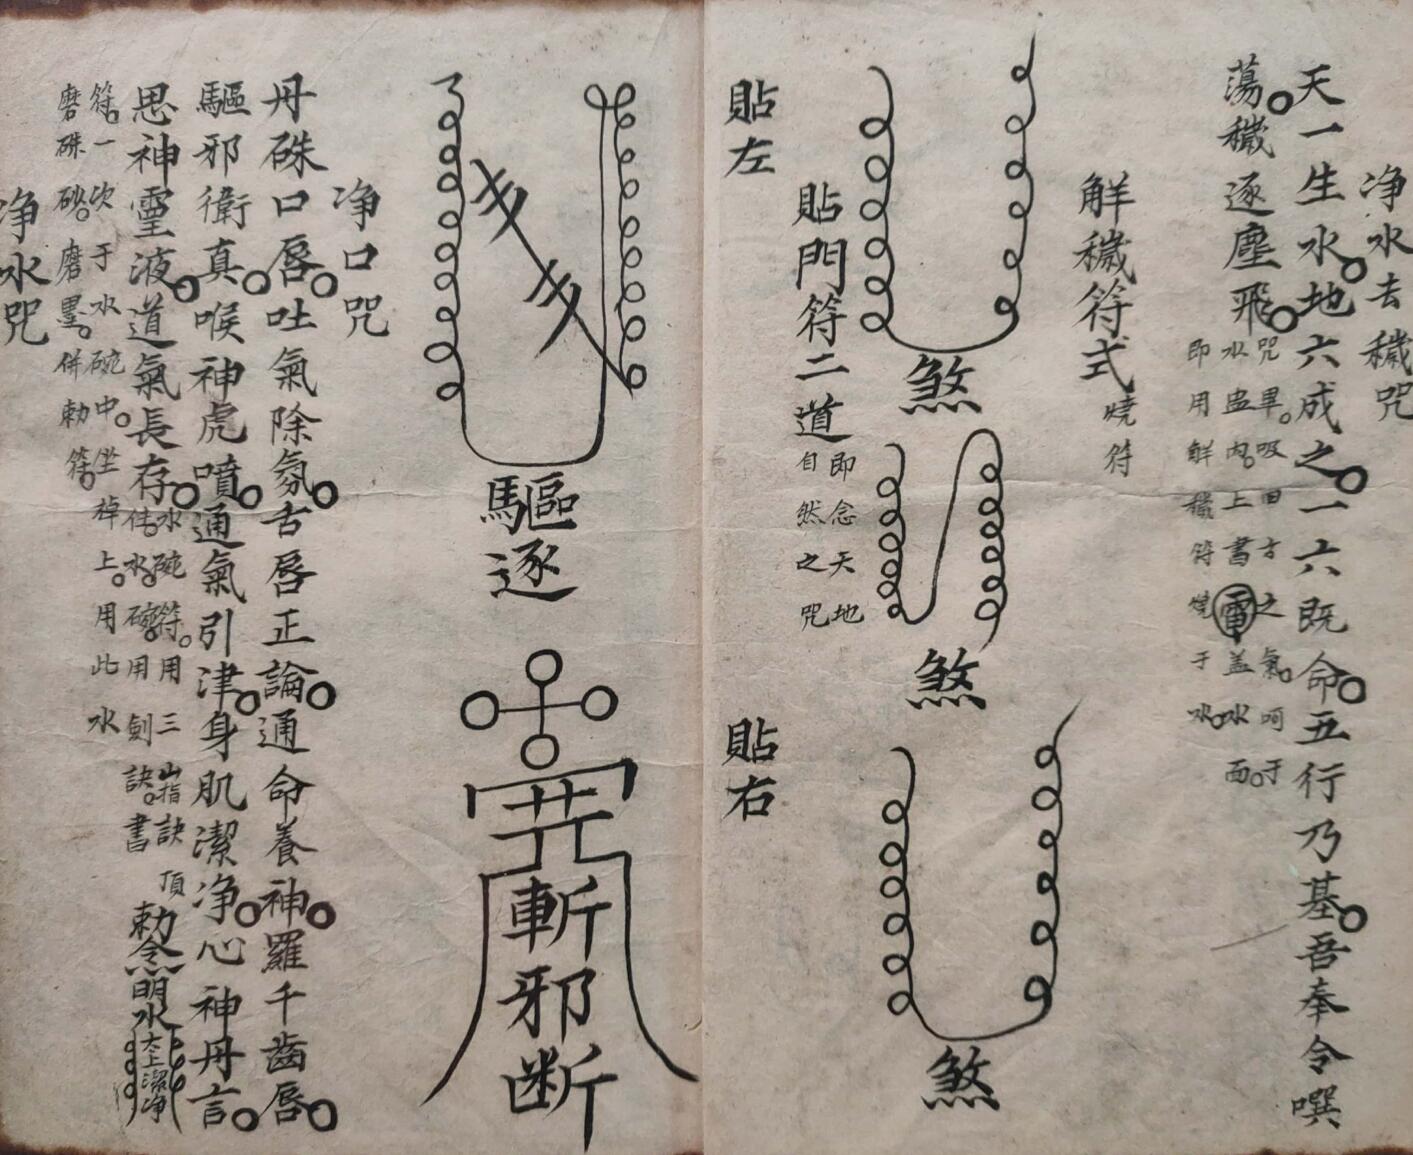 净水去穢咒
天一生水地六成之一六既命五行乃基吾奉令噀
蕩穢逐塵飛
咒畢吸日方之氣呵于
水盅内上書電盖水面
即用解穢符燒于水
解穢符式
燒符
煞
煞
煞
貼門符二道
即念天地
自然之咒
貼左
貼右
驅逐
斬邪断
净口咒
丹硃口唇吐氣除氛舌唇正論通命養神羅千齒唇
驅邪衛真喉神虎噴通氣引津身肌潔净心神丹言
思神靈液道氣長存
水碗符用三山指訣
使水碗用劍訣書
頂
勅令
明水
太上潔净
符一次于水碗中坐棹上用此水
磨硃砂磨墨併勅符
净水咒